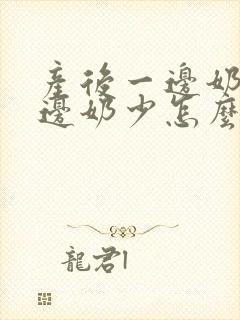 產後一邊奶
邊奶少怎麼
龍君1